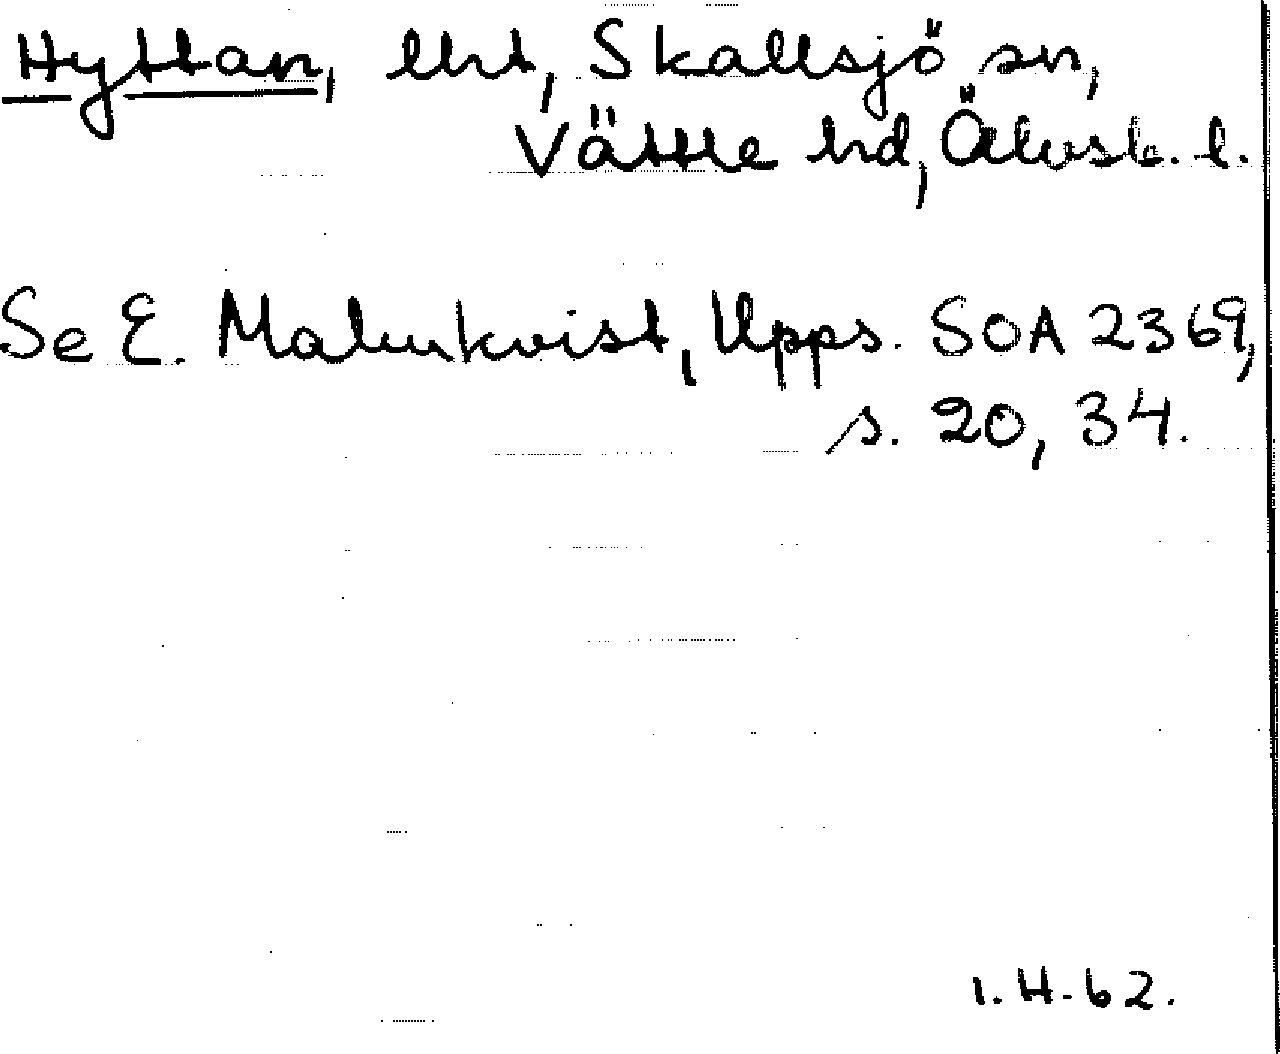 Hyttan, lht, Skallsjö sn,
Vättle hd, Älvsb. l.
Se E. Malmkvist, Upps. SOA 2369,
s. 20, 34.
I. H-62.